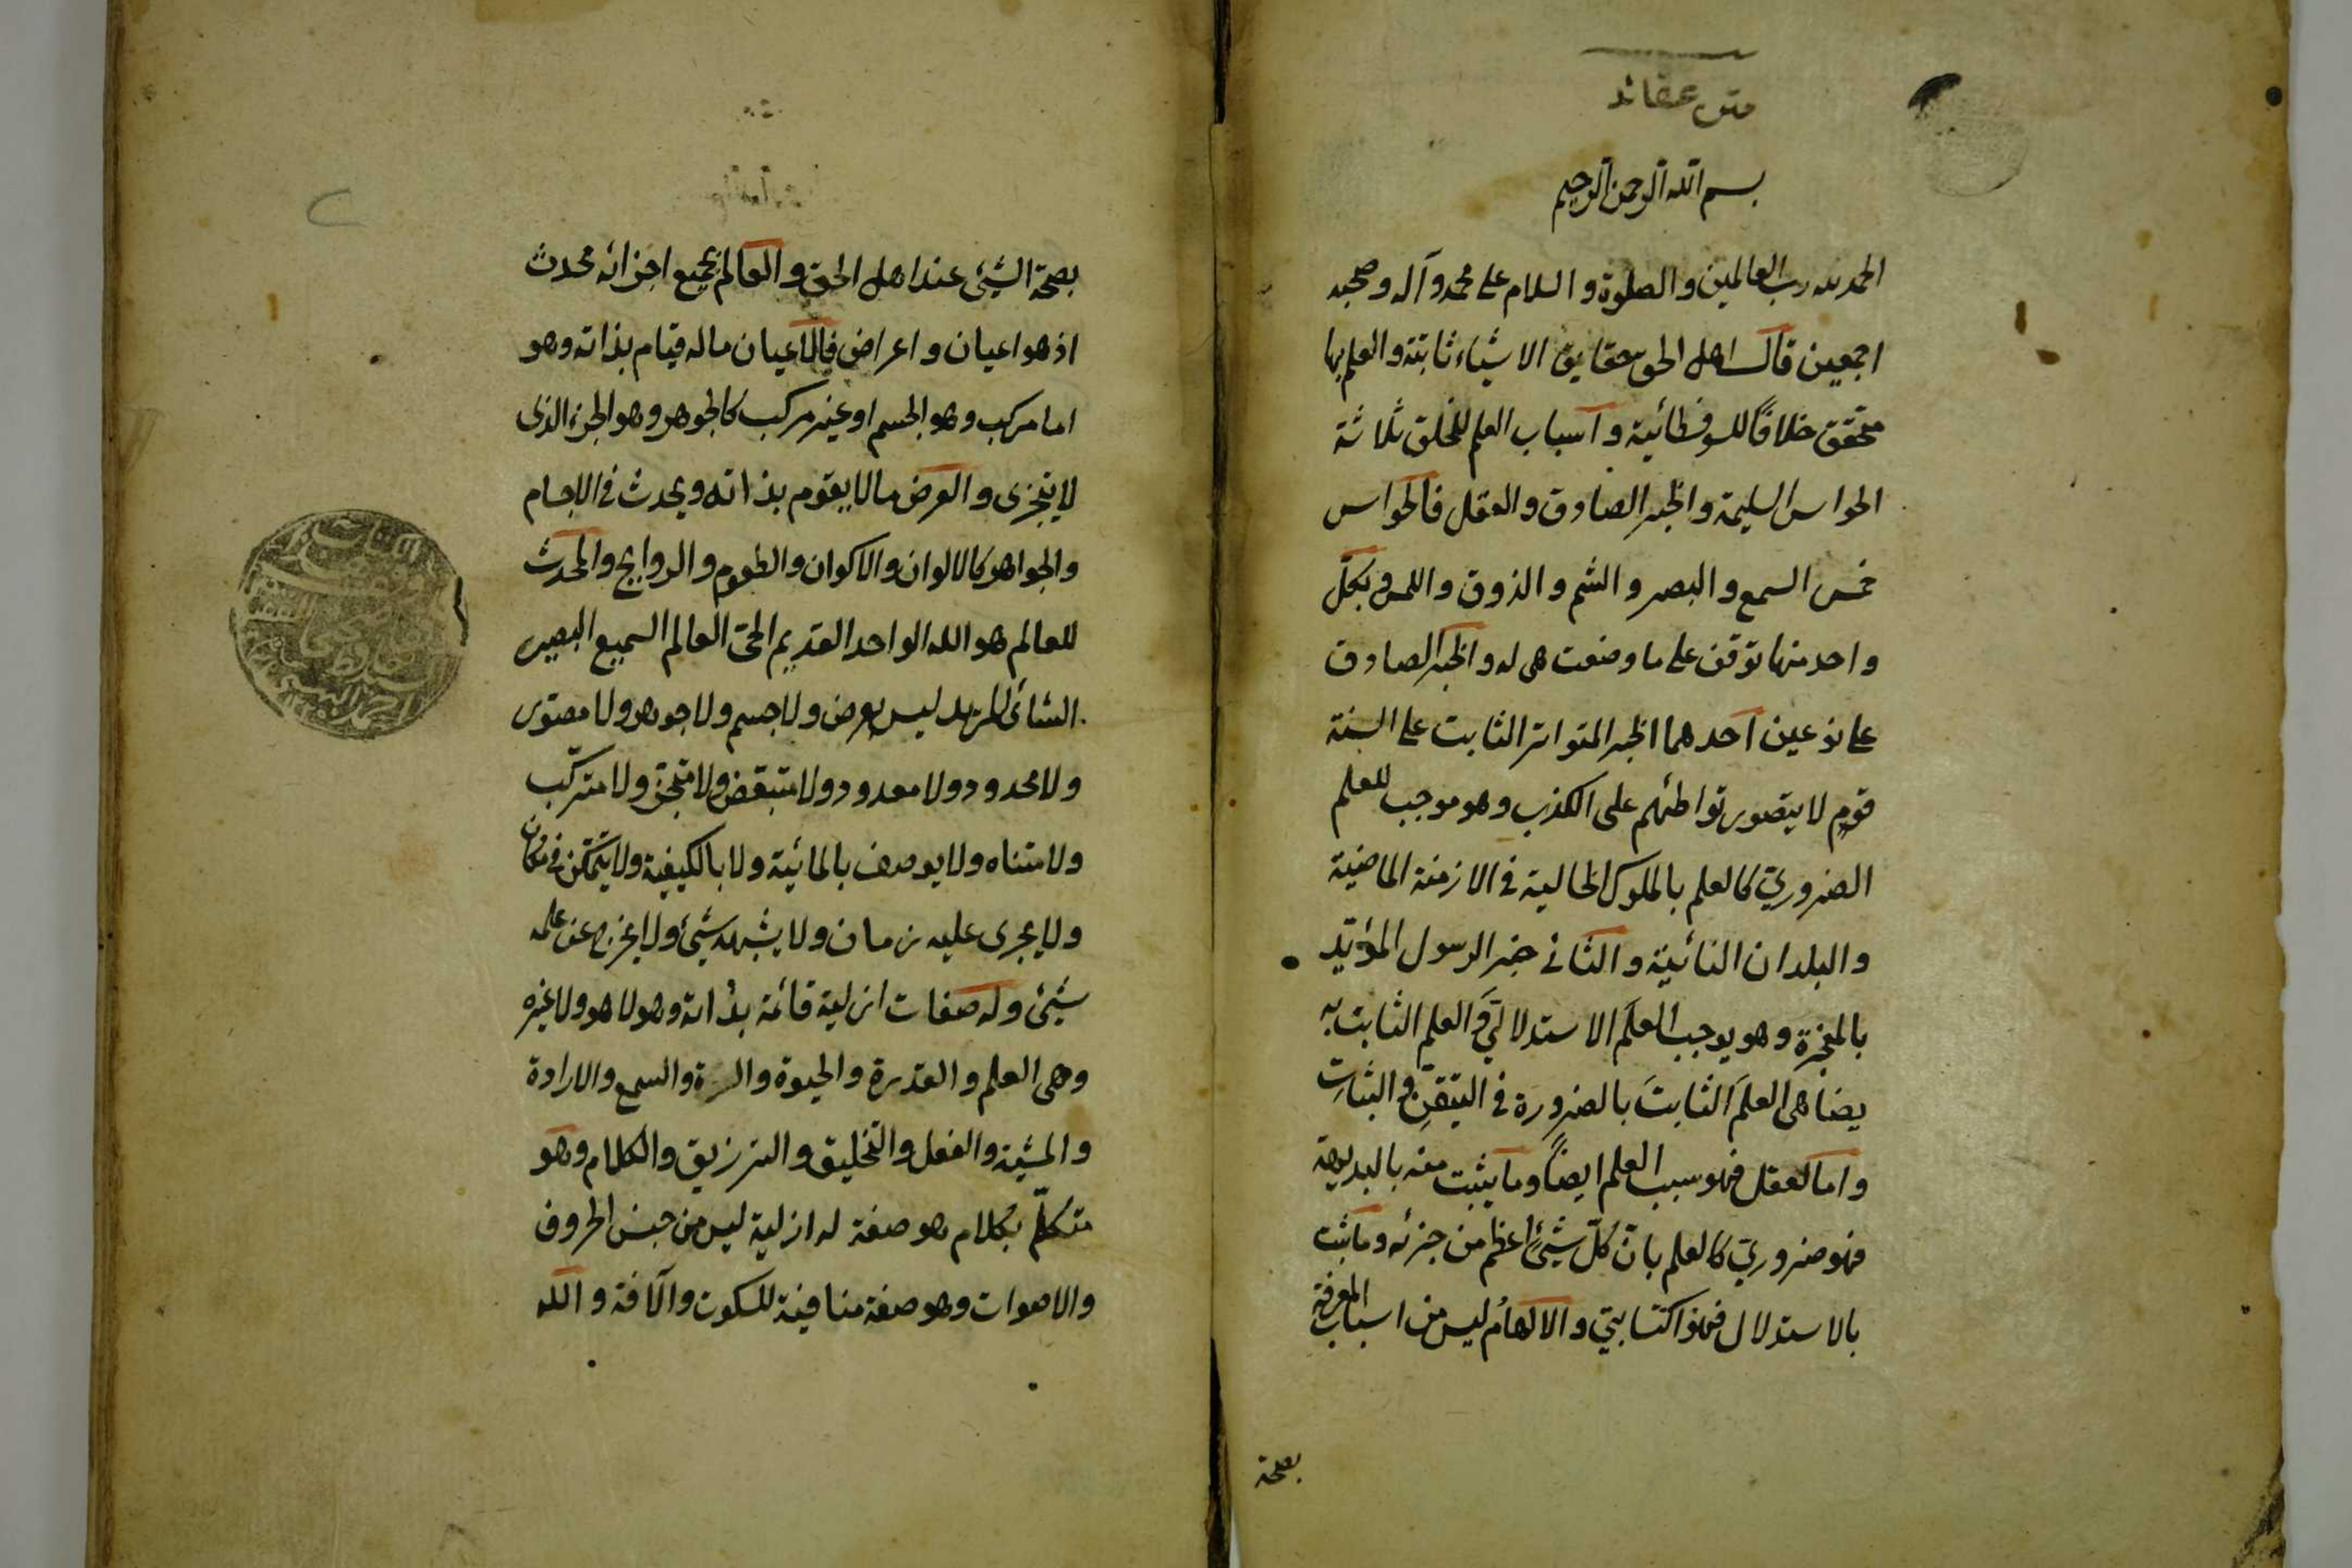 متن عقائد
بسم الله الرحمن الرحيم
الحمد لله رب العالمين والصلوة والسلام على محمد وآله وصحبه
اجمعين قال اهل الحق حقايق الاشياء ثابتة والعلم بها
متحقق خلافاً للسوفسطائية واسباب العلم للخلق ثلاثة
الحواس السليمة والخبر الصادق والعقل فالحواس
خمس السمع والبصر والشم والذوق واللمس وبكلّ
واحد منها توقف على ما وضعت هى له والخبر الصادق
على نوعين احدهما الخبر المتواتر الثابت على السنة
قومٍ لا يتصور تواطئهم على الكذب وهو موجب للعلم
الضروريّ كالعلم بالملوك الخالية فى الازمنة الماضية
والبلدان النائية والثانى خبر الرسول المؤيّد
بالمعجزة وهو يوجب العلمَ الاستدلاليَّ والعلم الثابت به
يضاهى العلمَ الثابتَ بالضرورة فى التيقنِ والثباتِ
واما العقل فهو سبب العلم ايضاً وما يثبت منه بالبديهة
فهو ضروريّ كالعلم بانّ كلّ شيئٍ اعظم من جزئه وما ثبت
بالاستدلال فهو اكتسابيّ والالهامُ ليس من اسباب المعرفةِ
بصحة
بصحة الشيئ عند اهل الحق والعالم بجميع اجزائه محدث
اذ هو اعيان واعراض فالاعيان ما له قيام بذاته وهو
اما مركب وهو الجسم او غير مركب كالجوهر وهو الجزء الذى
لا يتجزى والعرض ما لا يقوم بذاته ويحدث فى الاجسام
والجواهر كالالوان والاكوان والطعوم والروايح والمحدث
للعالم هو الله الواحد القديم الحىّ العالم السميع البصير
الشائى المريد ليس بعرض ولا جسم ولا جوهر ولا مصتور
ولا محدود ولا معدود ولا متبعّض ولا متجزّ ولا متركّب
ولا متناه ولا يوصف بالمائية ولا بالكيفية ولا يتمكن فى مكان
ولا يجرى عليه زمان ولا يشبهه شيئ ولا يخرج عن علمه
شيئ وله صفات ازلية قائمة بذاته وهو لا هو ولا غيره
وهى العلم والقدرة والحيوة والسمع والارادة
والمشية والفعل والتخليق والترزيق والكلام وهو
متكلّم بكلام هو صفة له ازلية ليس من جنس الحروف
والاصوات وهو صفة منافية للسكوت والآفة والله